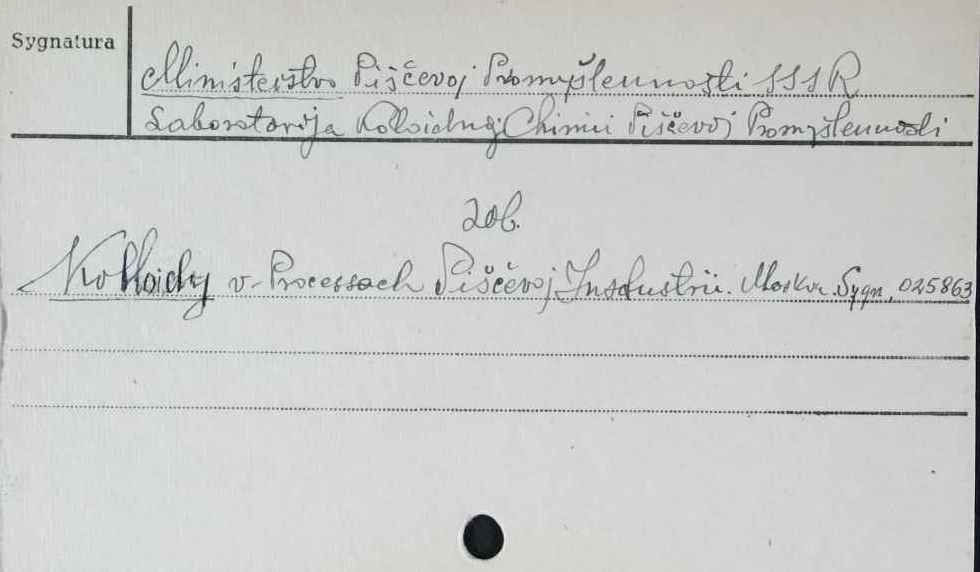 Sygnatura
Ministerstvo Piščevoj Promyšlennosti SSSR
Laboratorija Kolloidnoj Chimii Piščevoj Promyšlennosti
Zob.
Kolloidy v Processach Piščevoj Industrii. Moskva. Sygn. 025863